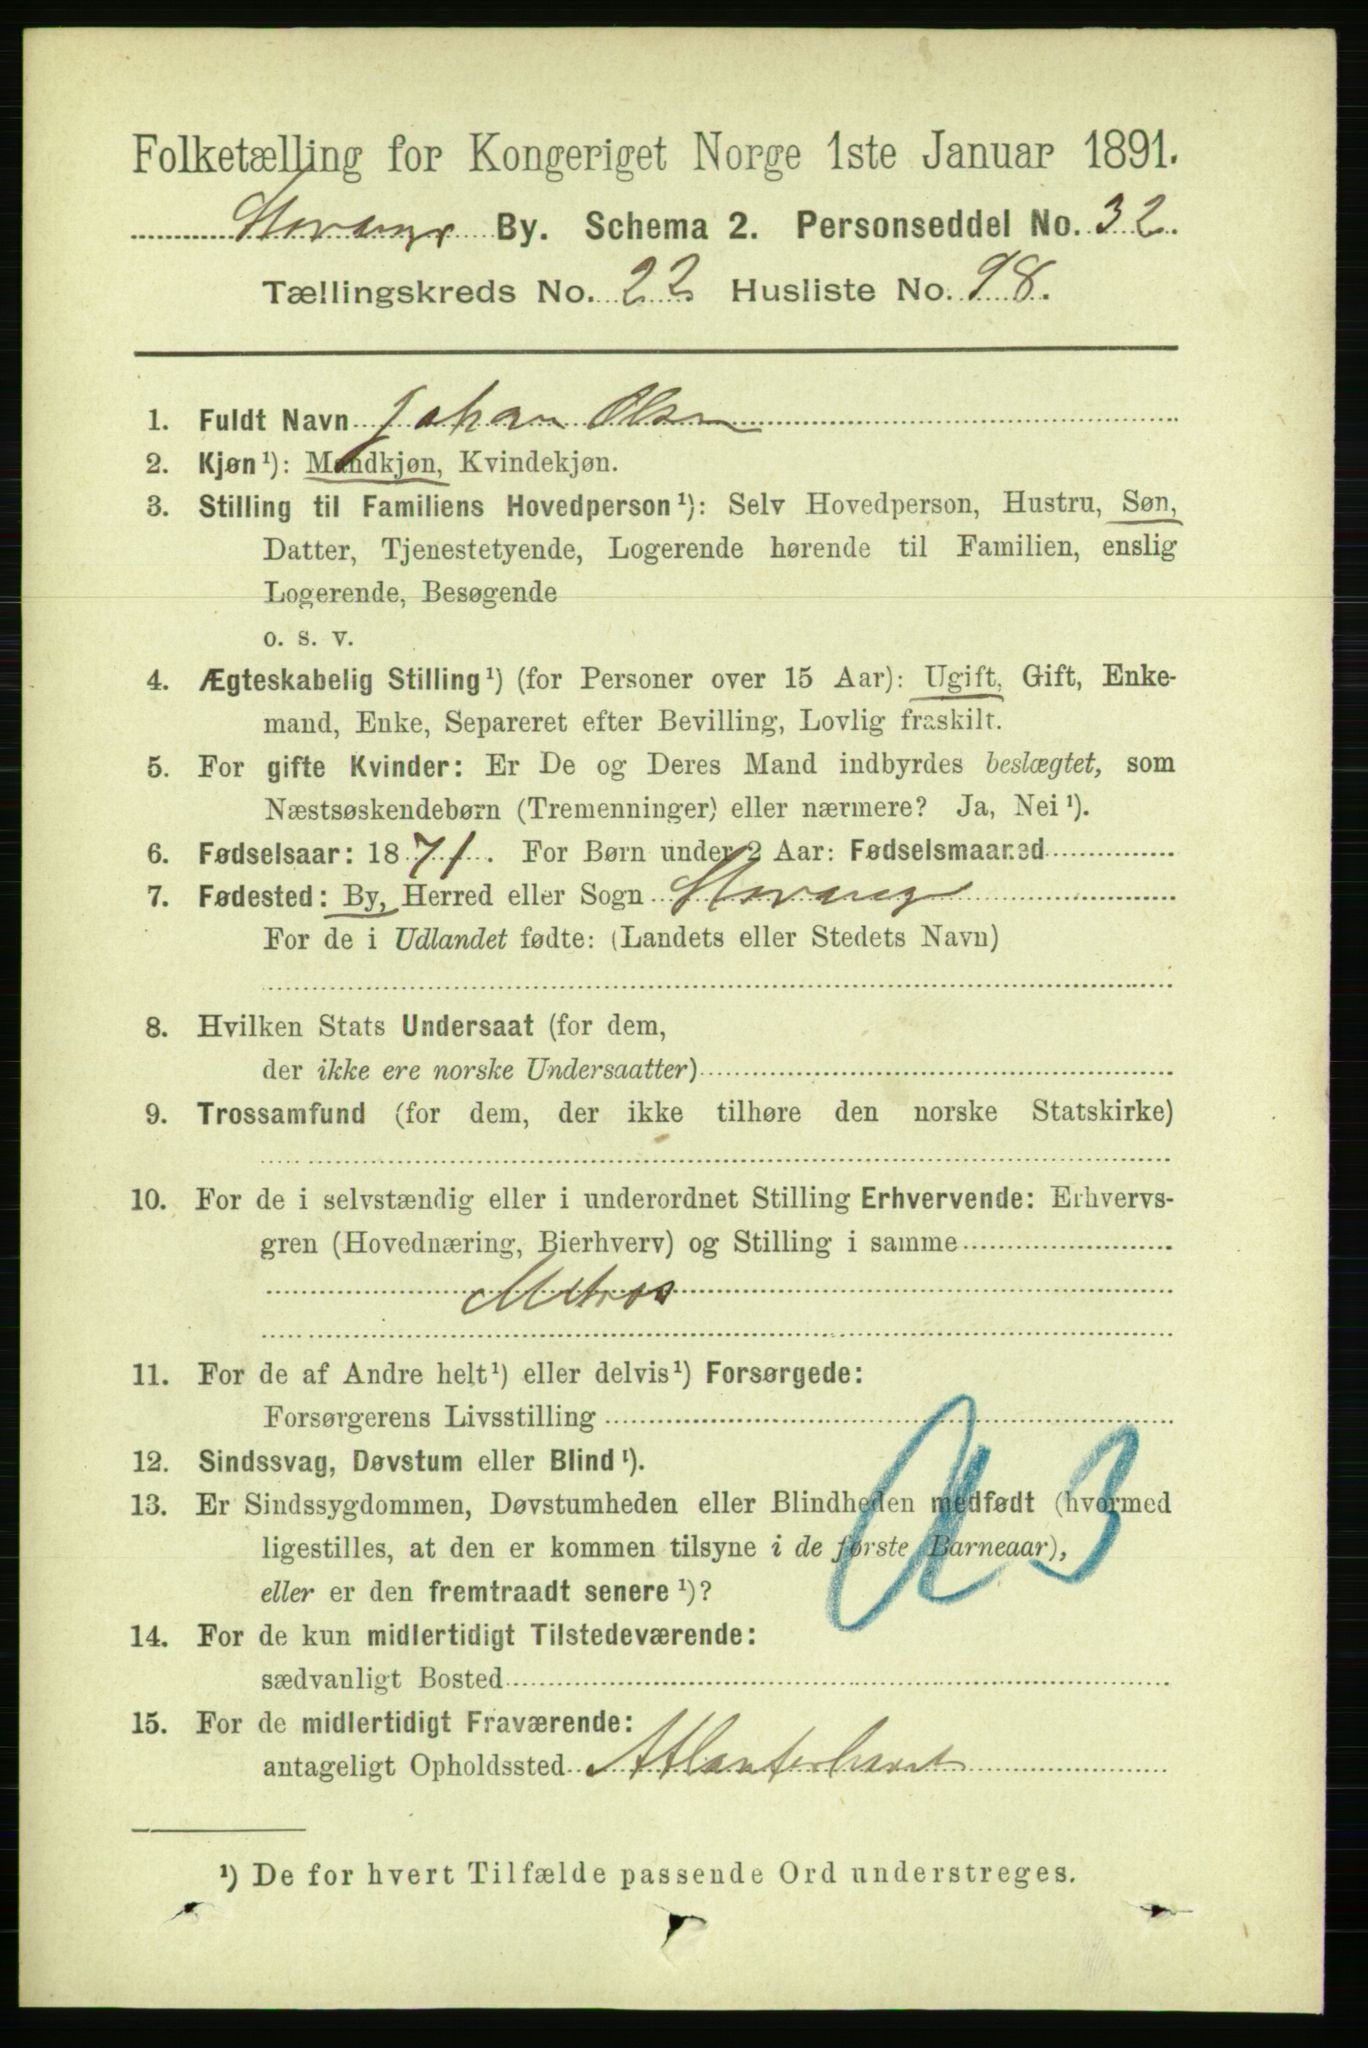 Folketælling for Kongeriget Norge 1ste Januar 1891.
Stavanger By. Schema 2. Personseddel No. 32.
Tællingskreds No. 22 Husliste No. 98.
1. Fuldt Navn Johan Olsen
2. Kjøn¹): Mandkjøn, Kvindekjøn.
3. Stilling til Familiens Hovedperson¹): Selv Hovedperson, Hustru, Søn,
Datter, Tjenestetyende, Logerende hørende til Familien, enslig
Logerende, Besøgende
o. s. v.
4. Ægteskabelig Stilling¹) (for Personer over 15 Aar): Ugift, Gift, Enke-
mand, Enke, Separeret efter Bevilling, Lovlig fraskilt.
5. For gifte Kvinder: Er De og Deres Mand indbyrdes beslægtet, som
Næstsøskendebørn (Tremenninger) eller nærmere? Ja, Nei¹).
6. Fødselsaar: 1871. For Børn under 2 Aar: Fødselsmaaned
7. Fødested: By, Herred eller Sogn Stavanger
For de i Udlandet fødte: (Landets eller Stedets Navn)
8. Hvilken Stats Undersaat (for dem,
der ikke ere norske Undersaatter)
9. Trossamfund (for dem, der ikke tilhøre den norske Statskirke)
10. For de i selvstændig eller i underordnet Stilling Erhvervende: Erhvervs-
gren (Hovednæring, Bierhverv) og Stilling i samme
Matros
11. For de af Andre helt¹) eller delvis¹) Forsørgede:
Forsørgerens Livsstilling
12. Sindssvag, Døvstum eller Blind¹).
13. Er Sindssygdommen, Døvstumheden eller Blindheden medfødt (hvormed
ligestilles, at den er kommen tilsyne i de første Barneaar),
eller er den fremtraadt senere¹)?
14. For de kun midlertidigt Tilstedeværende:
sædvanligt Bosted
15. For de midlertidigt Fraværende:
antageligt Opholdssted Atlanterhavet
¹) De for hvert Tilfælde passende Ord understreges.